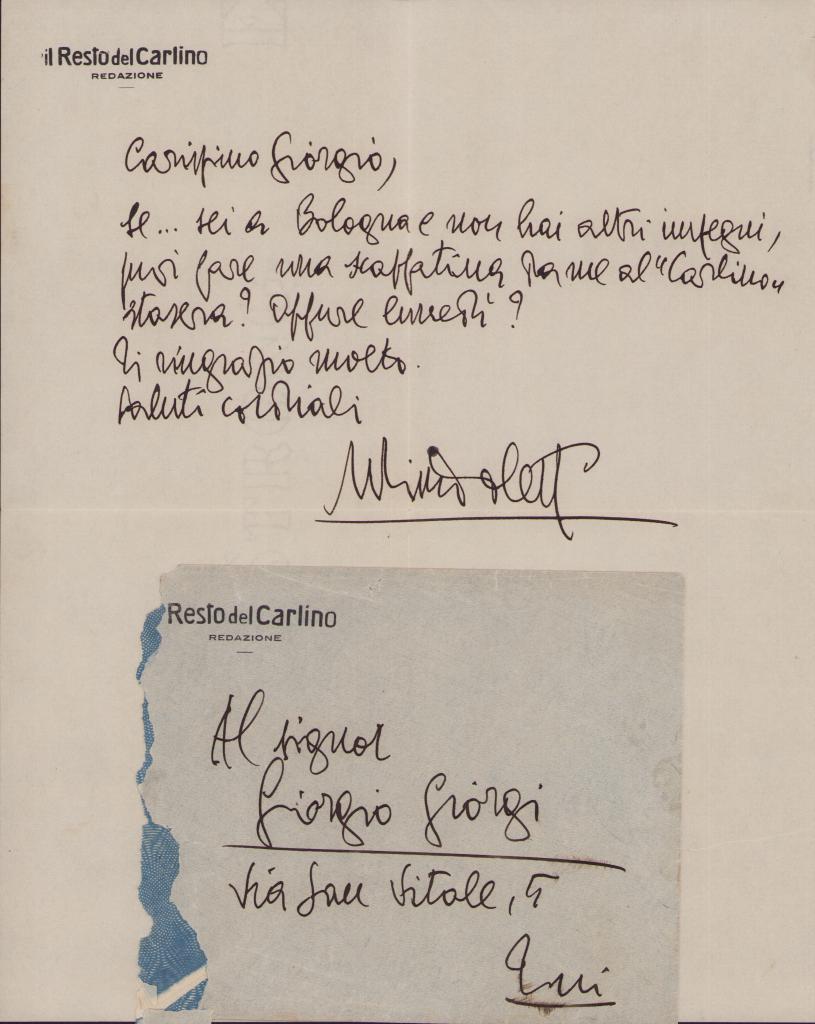 il Resto del Carlino
REDAZIONE
Carissimo Giorgio,
se... sei a Bologna e non hai altri impegni,
puoi fare una scappatina da me al "Carlino"
stasera? Oppure lunedì?
Ti ringrazio molto.
Saluti cordiali
Resto del Carlino
REDAZIONE
Al signor
Giorgio Giorgi
Via San Vitale, 5